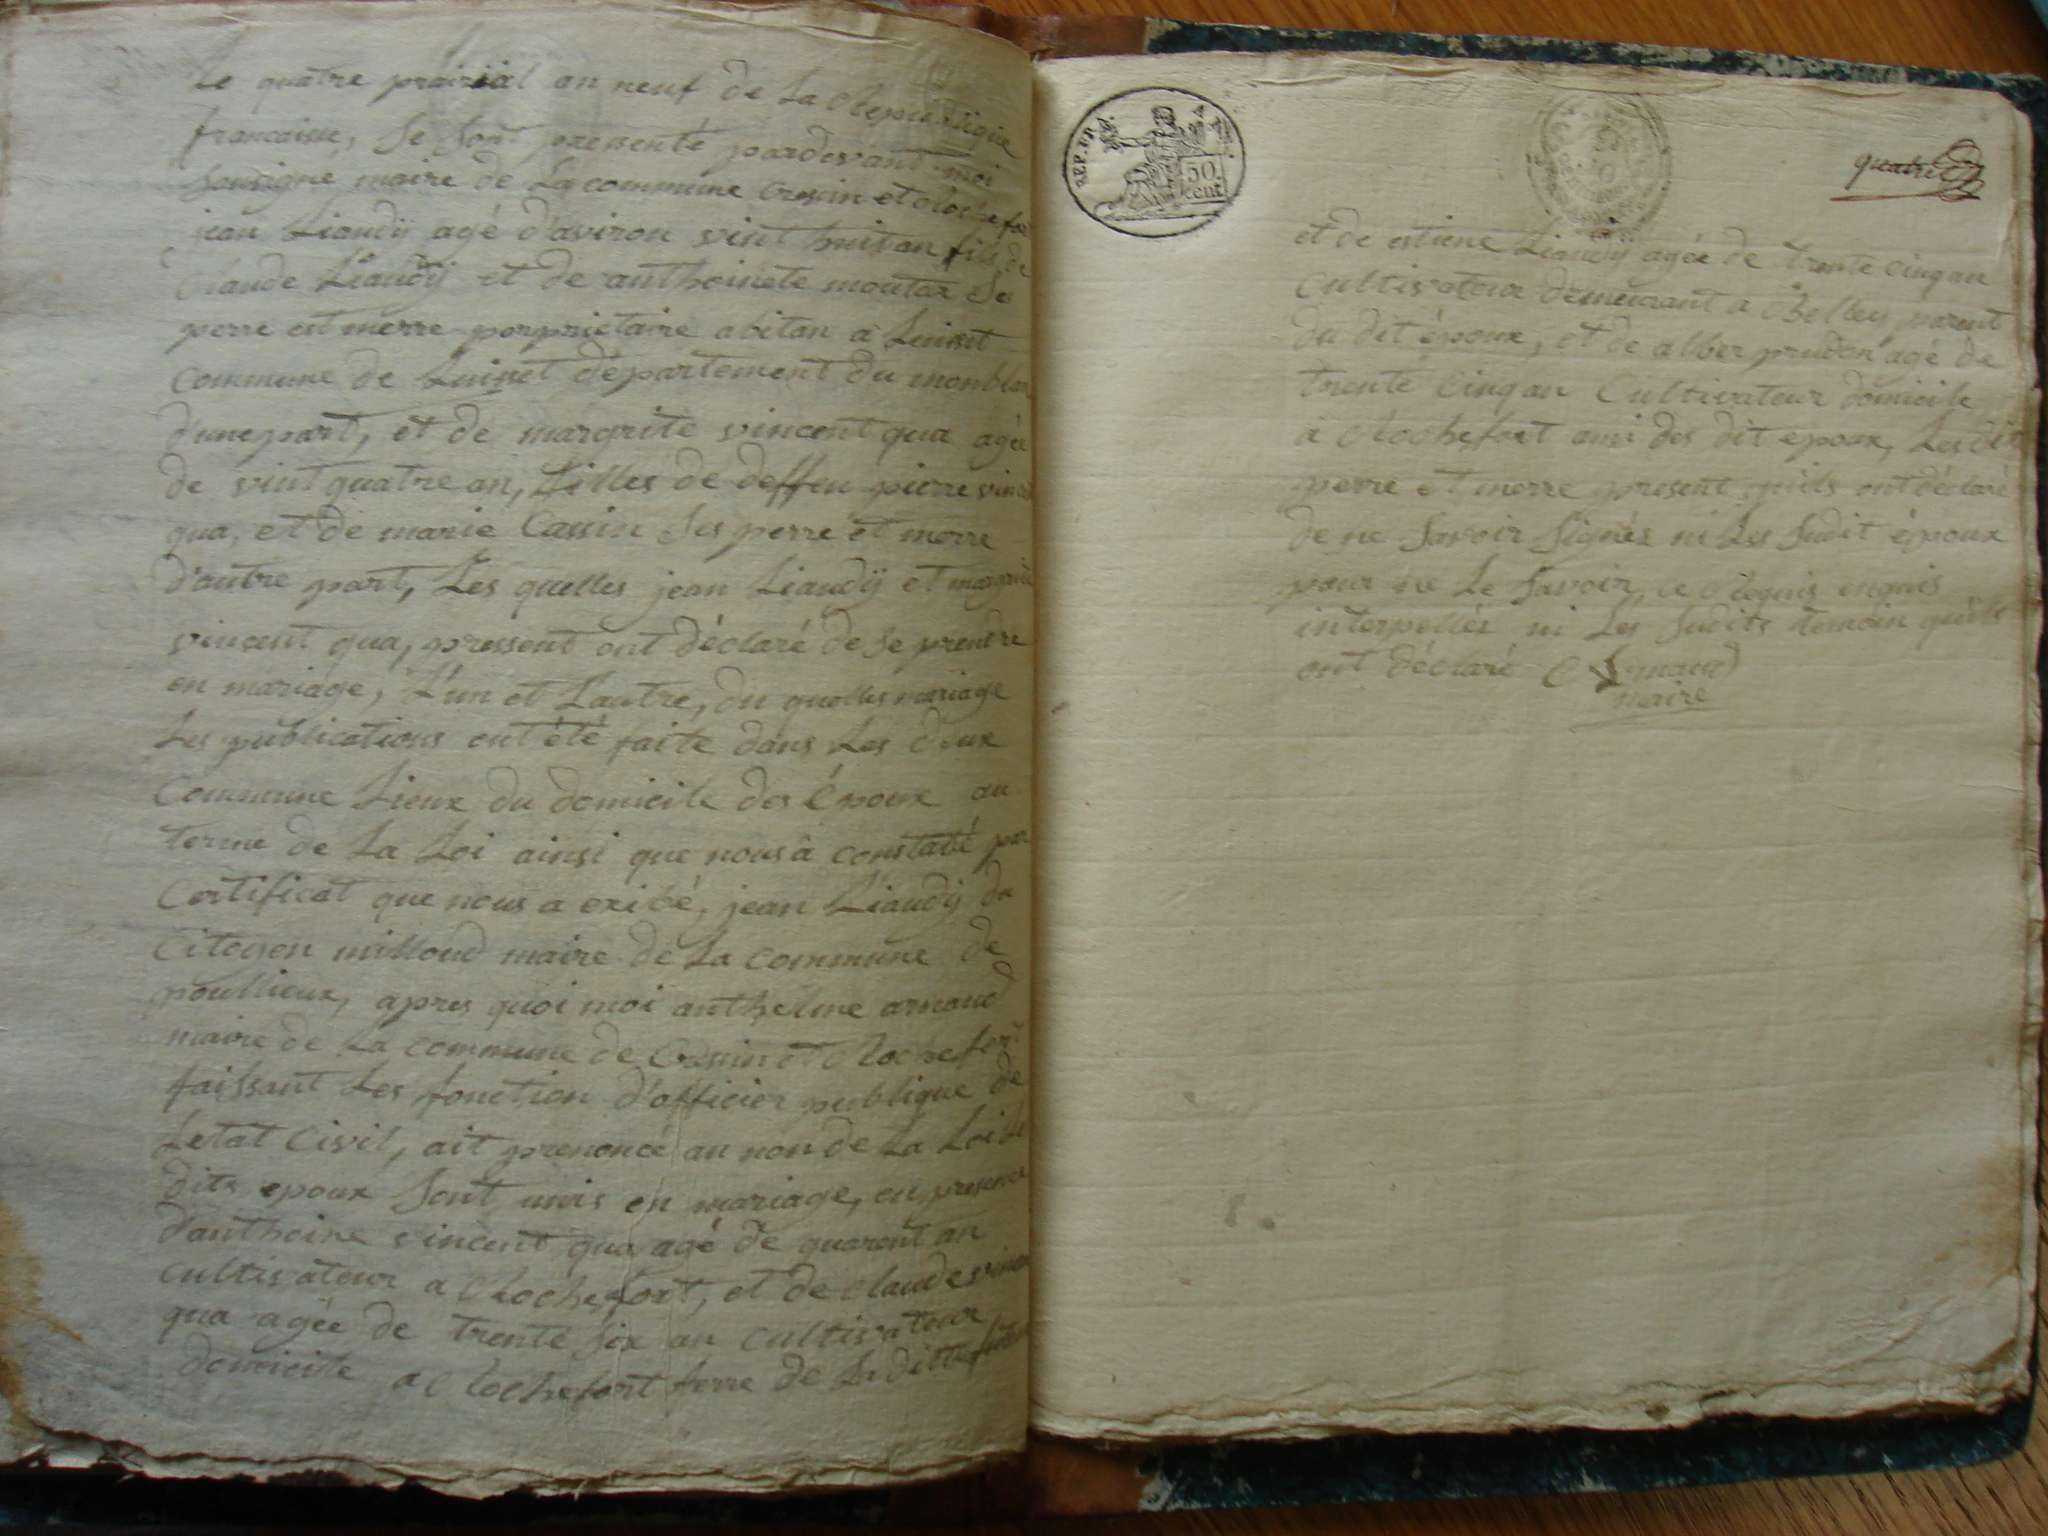 Le quatre prairial an neuf de La Republique
francaisse, Se Son pressenté pardevant moi
Sousigné maire de La commune Cressin et Rochefor
jean Liaudÿ agé d'aviron vint huit an fils de
Claude Liaudÿ et de anthoinete montax Se
perre est merre porprietaire abitan à
commune de département du monblan
d'unepart, et de margrite vincent qua agée
de vint quatre an, filles de deffeu pierre vincent
qua, et de marie Cassin Ses perre et merre
d'autre part, Les quelles jean Liaudÿ et margrite
vincent qua, pressent ont déclaré de Se prendre
en mariage, L'un et L'autre, du quelles mariage
Les publications ont été faite dans Les deux
Commune Lieux du domicile des Époux au
terme de La Loi ainsi que nous â constaté par
Certificat que nous a exibé, jean Liaudÿ du
Citoyen millioud maire de La commune de
poullieux, apres quoi moi anthelme arnaud
maire de La commune de Cressin et Rochefort
faissant Les fonction d'officier publique de
Letat Civil, ait prenoncé au non de La Loi Les
dits epoux Sont unis en mariage, en presence
d'anthoine vincent qua agé de quarent an
cultivateur a Rochefort, et de Claude vincent
qua agée de trente Six an cultivateur
domicile a Rochefort ferre de La ditte
REP. FRA.
50.
cent
quatre
et de estiene Liaudÿ agée de trente cinq an
Cultivateur demeurant a Belley parent
du dit époux, et de alber prudon agé de
trente Cinq an Cultivateur domicile
a Rochefort ami des dit epoux, Les dit
perre et merre present quils ont déclaré
de ne Savoir Signés ni Les Sudit époux
pour ne Le Savoir, ce Requis enquis
interpellés ni Les Sudits temoin quils
ont déclaré arnaud
maire